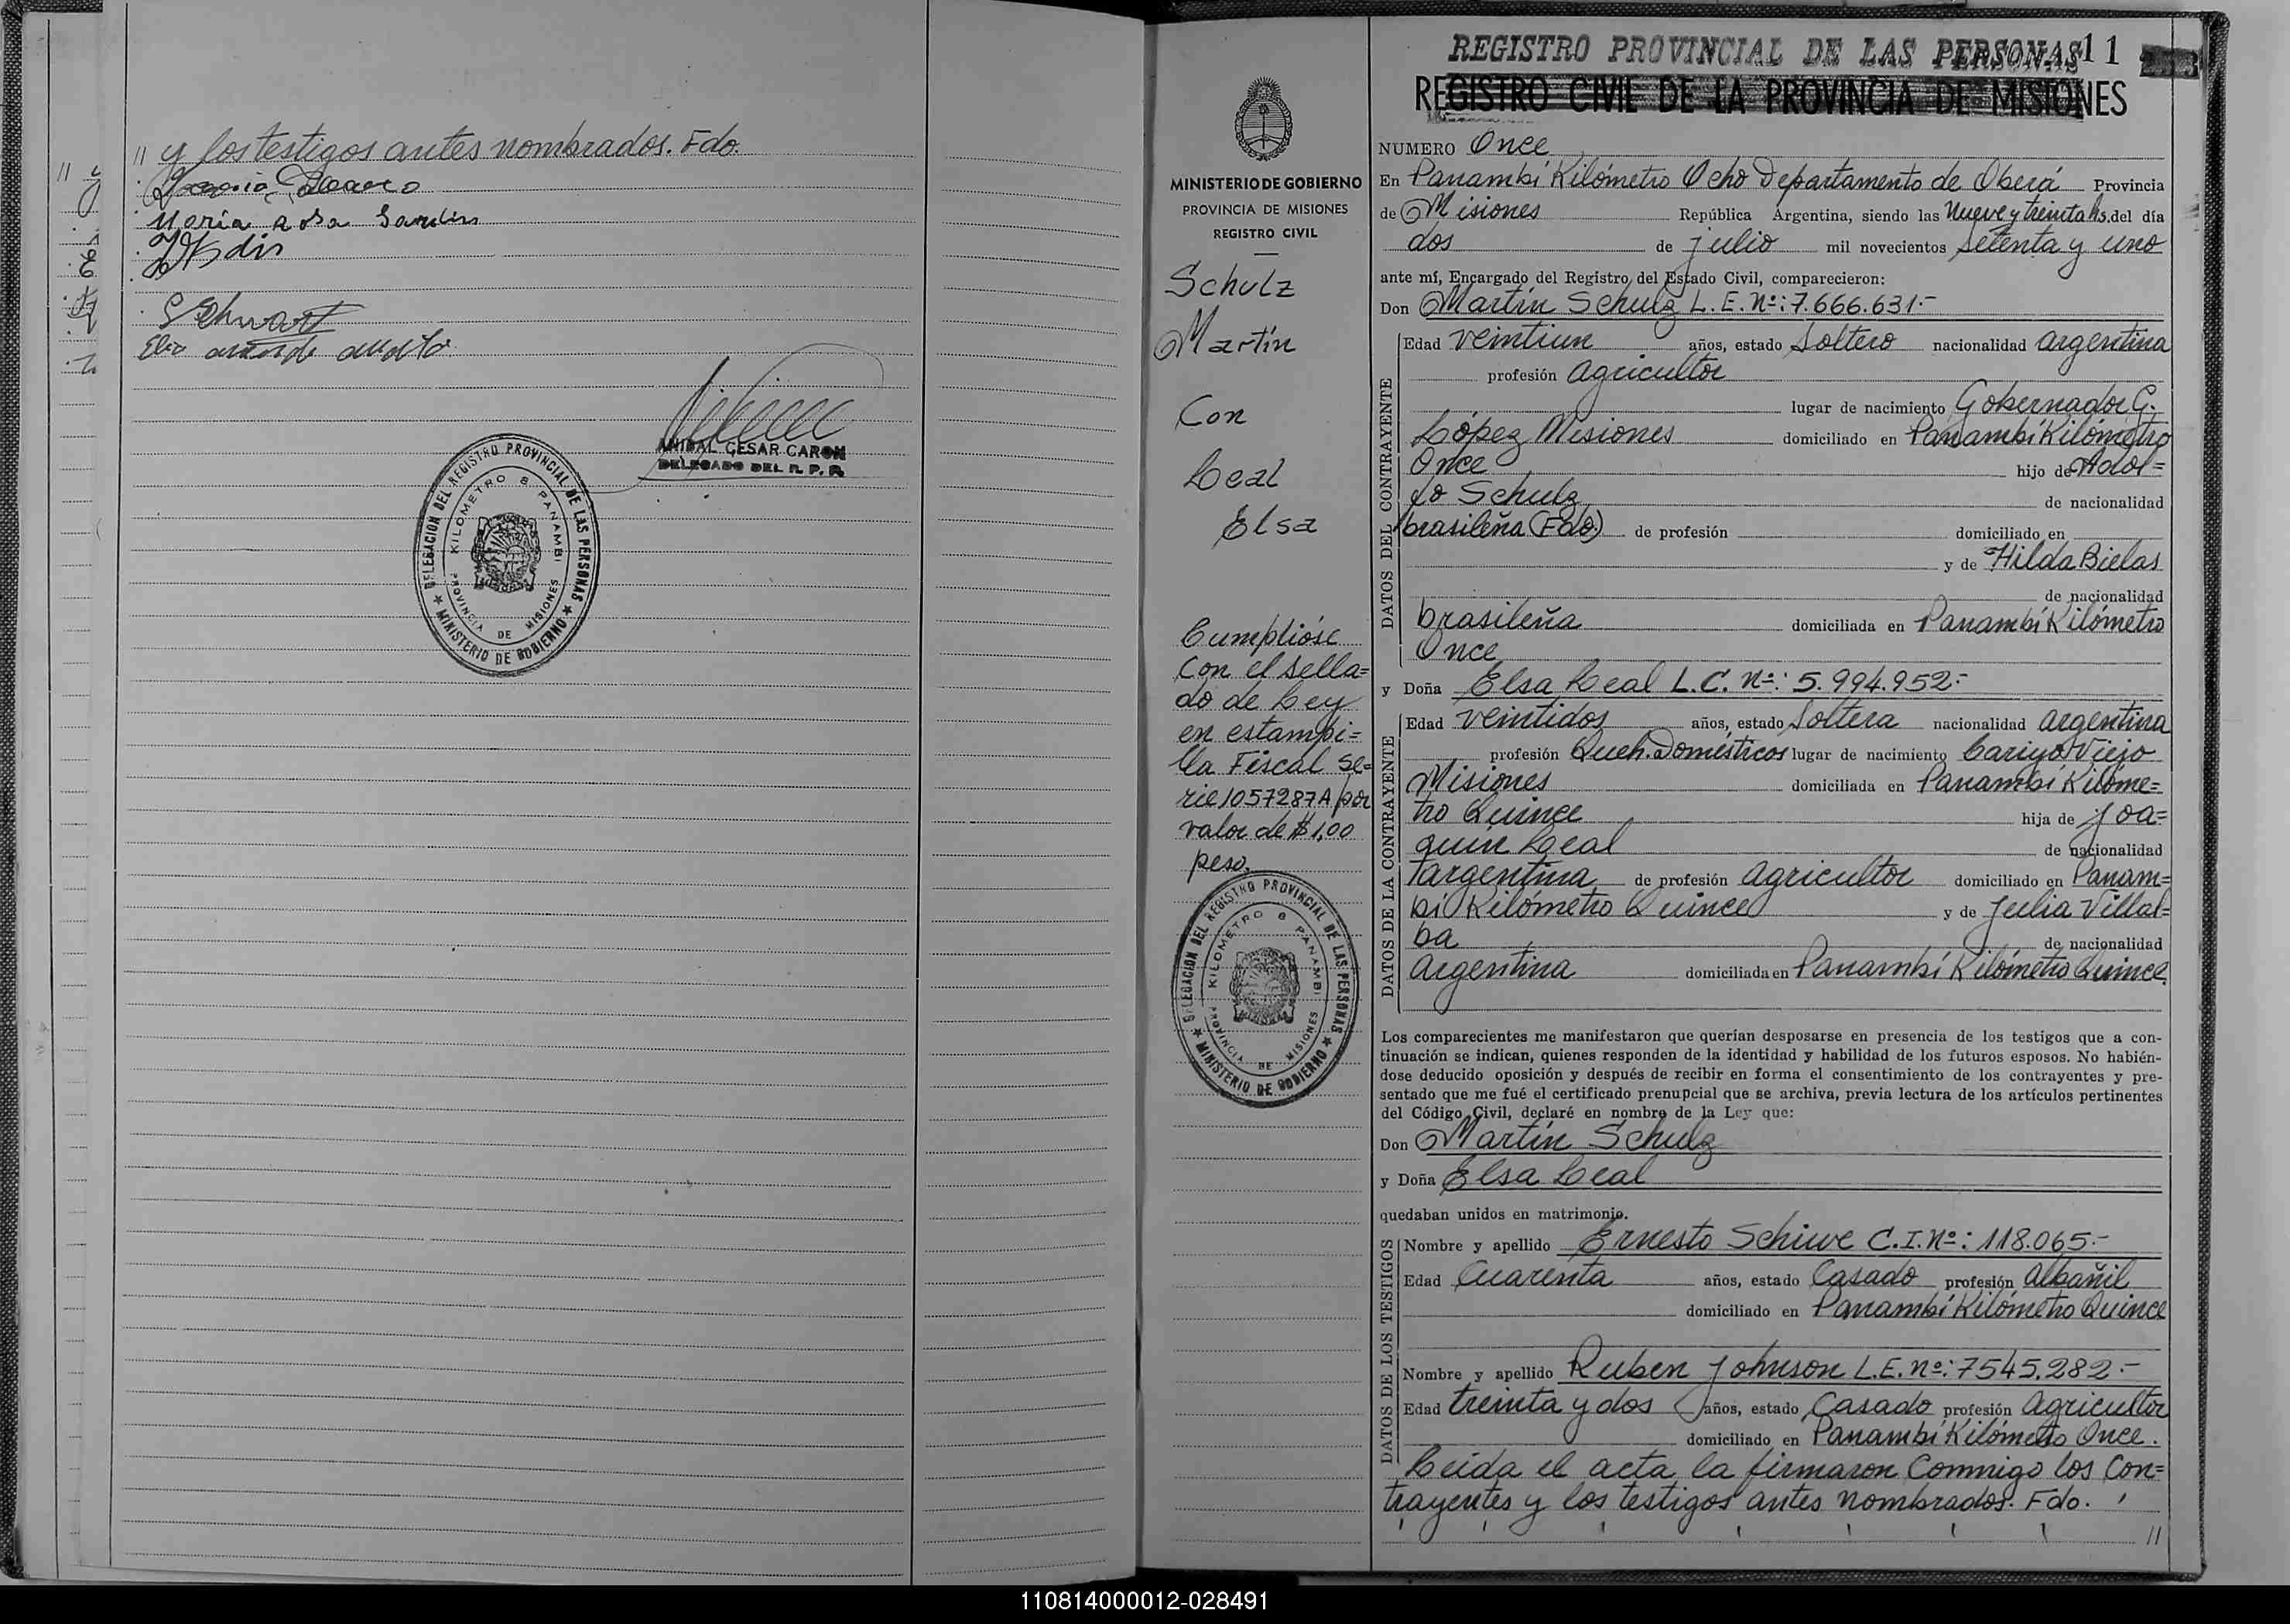 // y los testigos antes nombrados. Fdo.
María Rosa
ANIBAL CESAR CARON
DELEGADO DEL R. P. P.
DELEGACION DEL REGISTRO PROVINCIAL DE LAS PERSONAS
KILOMETRO 8 PANAMBI
PROVINCIA DE MISIONES
★ MINISTERIO DE GOBIERNO ★
MINISTERIO DE GOBIERNO
PROVINCIA DE MISIONES
REGISTRO CIVIL
Schulz
Martín
Con
Leal
Elsa
Cumplióse
con el sella=
do de Ley
en estampi=
lla Fiscal se=
rie 1057287A por
valor de $1,00
peso,
DELEGACION DEL REGISTRO PROVINCIAL DE LAS PERSONAS
KILOMETRO 8 PANAMBI
PROVINCIA DE MISIONES
★ MINISTERIO DE GOBIERNO ★
REGISTRO PROVINCIAL DE LAS PERSONAS 11
REGISTRO CIVIL DE LA PROVINCIA DE MISIONES
NUMERO Once
En Panambí Kilómetro Ocho Departamento de Oberá Provincia
de Misiones República Argentina, siendo las Nueve y treinta hs. del día
dos de julio mil novecientos setenta y uno
ante mí, Encargado del Registro del Estado Civil, comparecieron:
Don Martín Schulz L.E. Nº: 7.666.631.-
DATOS DEL CONTRAYENTE
Edad veintiun años, estado Soltero nacionalidad argentina
profesión agricultor
lugar de nacimiento Gobernador G.
López Misiones domiciliado en Panambí Kilómetro
Once hijo de Adol=
fo Schulz de nacionalidad
brasileña (Fdo) de profesión domiciliado en
y de Hilda Bielas
de nacionalidad
brasileña domiciliada en Panambí Kilómetro
Once
y Doña Elsa Leal L.C. Nº: 5.994.952.-
DATOS DE LA CONTRAYENTE
Edad veintidos años, estado Soltera nacionalidad argentina
profesión Queh. Domésticos lugar de nacimiento Cariyo Viejo
Misiones domiciliada en Panambí Kilóme=
tro Quince hija de Joa=
quín Leal de nacionalidad
argentina de profesión agricultor domiciliado en Panam=
bí Kilómetro Quince y de Julia Villal=
ba de nacionalidad
argentina domiciliada en Panambí Kilómetro Quince
Los comparecientes me manifestaron que querían desposarse en presencia de los testigos que a con-
tinuación se indican, quienes responden de la identidad y habilidad de los futuros esposos. No habién-
dose deducido oposición y después de recibir en forma el consentimiento de los contrayentes y pre-
sentado que me fué el certificado prenupcial que se archiva, previa lectura de los artículos pertinentes
del Código Civil, declaré en nombre de la Ley que:
Don Martín Schulz
y Doña Elsa Leal
quedaban unidos en matrimonio.
DATOS DE LOS TESTIGOS
Nombre y apellido Ernesto Schiwe C.I. Nº: 118.065.-
Edad Cuarenta años, estado Casado profesión albañil
domiciliado en Panambí Kilómetro Quince
Nombre y apellido Ruben Johnson L.E. nº: 7545.282.-
Edad treinta y dos años, estado Casado profesión agricultor
domiciliado en Panambí Kilómetro Once.
Leida el acta la firmaron Conmigo los Con=
trayentes y los testigos antes nombrados. Fdo.
//
110814000012-028491